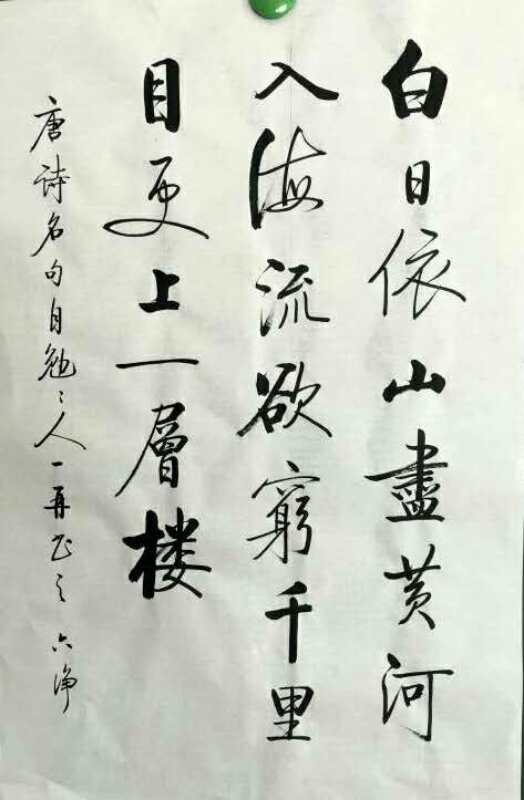 白日依山盡黄河
入海流欲窮千里
目更上一層楼
唐诗名句自勉〻人一再书之 六净